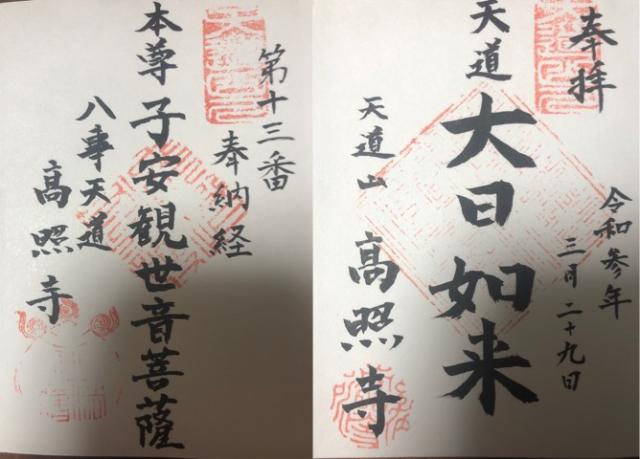 奉拝
令和参年
三月二十九日
天道
大日如来
天道山
髙照寺
第十三番
奉納経
本尊子安観世音菩薩
八事天道
髙照寺